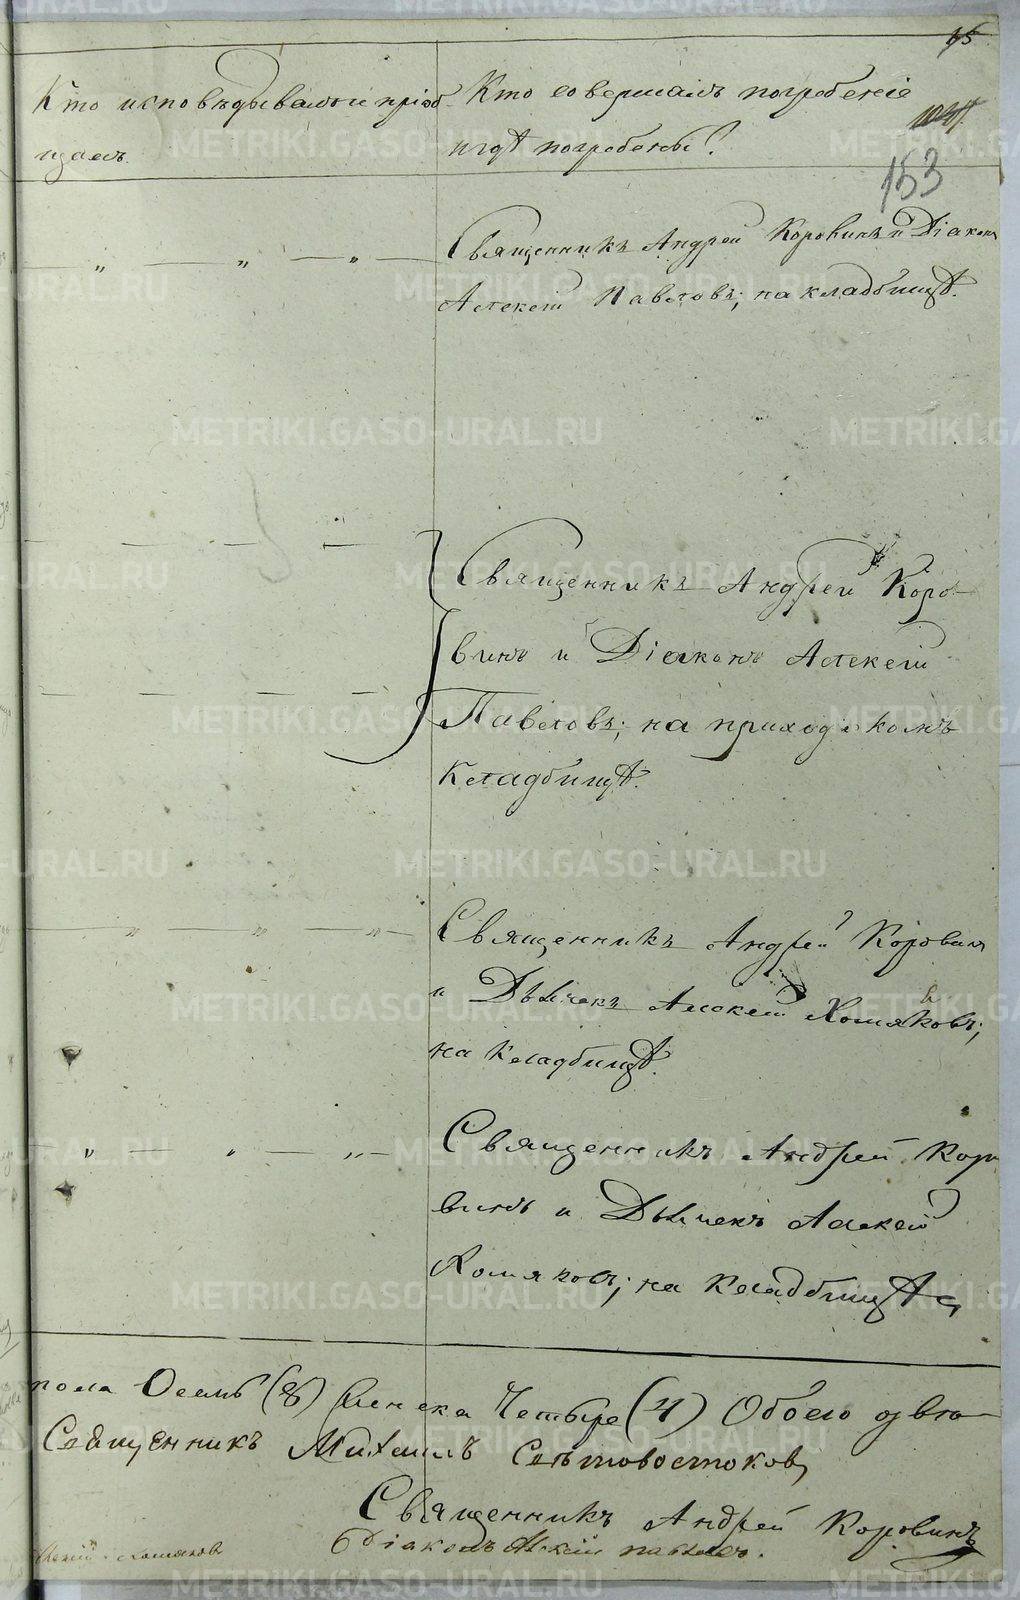 Кто исповѣдывалъ и пріоб-
щалъ.
Кто совершалъ погребеніе
и гдѣ погребены?
153
Священникъ Андрей Коровинъ и Діаконъ
Алексій Павловъ; на кладбищѣ.
Священникъ Андрей Коро-
винъ и Діаконъ Алексій
Павловъ; на приходскомъ
кладбищѣ.
Священникъ Андрей Коровинъ
и Дьячекъ Алексій Хомяковъ;
на кладбищѣ.
Священникъ Андрей Коро
винъ и Дьячекъ Алексій
Хомяковъ; на кладбищѣ
пола Осемь (8) Женска Четыре (4) Обоего
Священникъ Михаилъ Свѣтовостоковъ
Священникъ Андрей Коровинъ
Діаконъ Алексій Павловъ.
Хомяковъ
METRIKI.GASO-URAL.RU